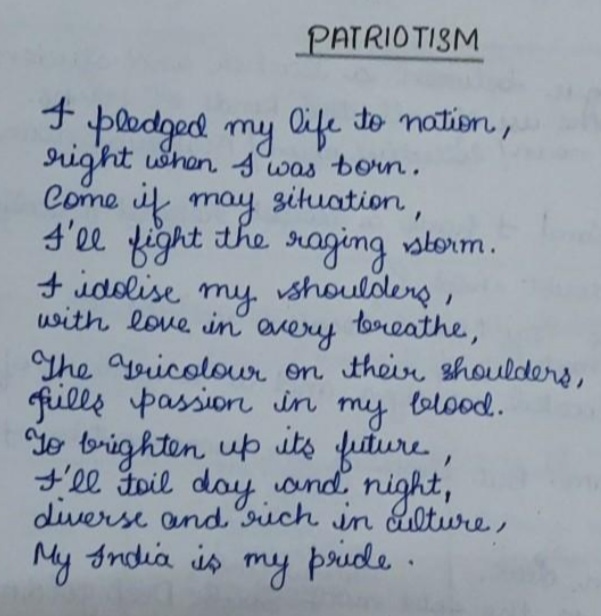 PATRIOTISM
I pledged my life to nation,
right when I was born.
Come if may situation,
I'll fight the raging storm.
I idolise my shoulders,
with love in every breathe,
The Tricolour on their shoulders,
fills passion in my blood.
To brighten up its future,
I'll toil day and night,
diverse and rich in culture,
My India is my pride.